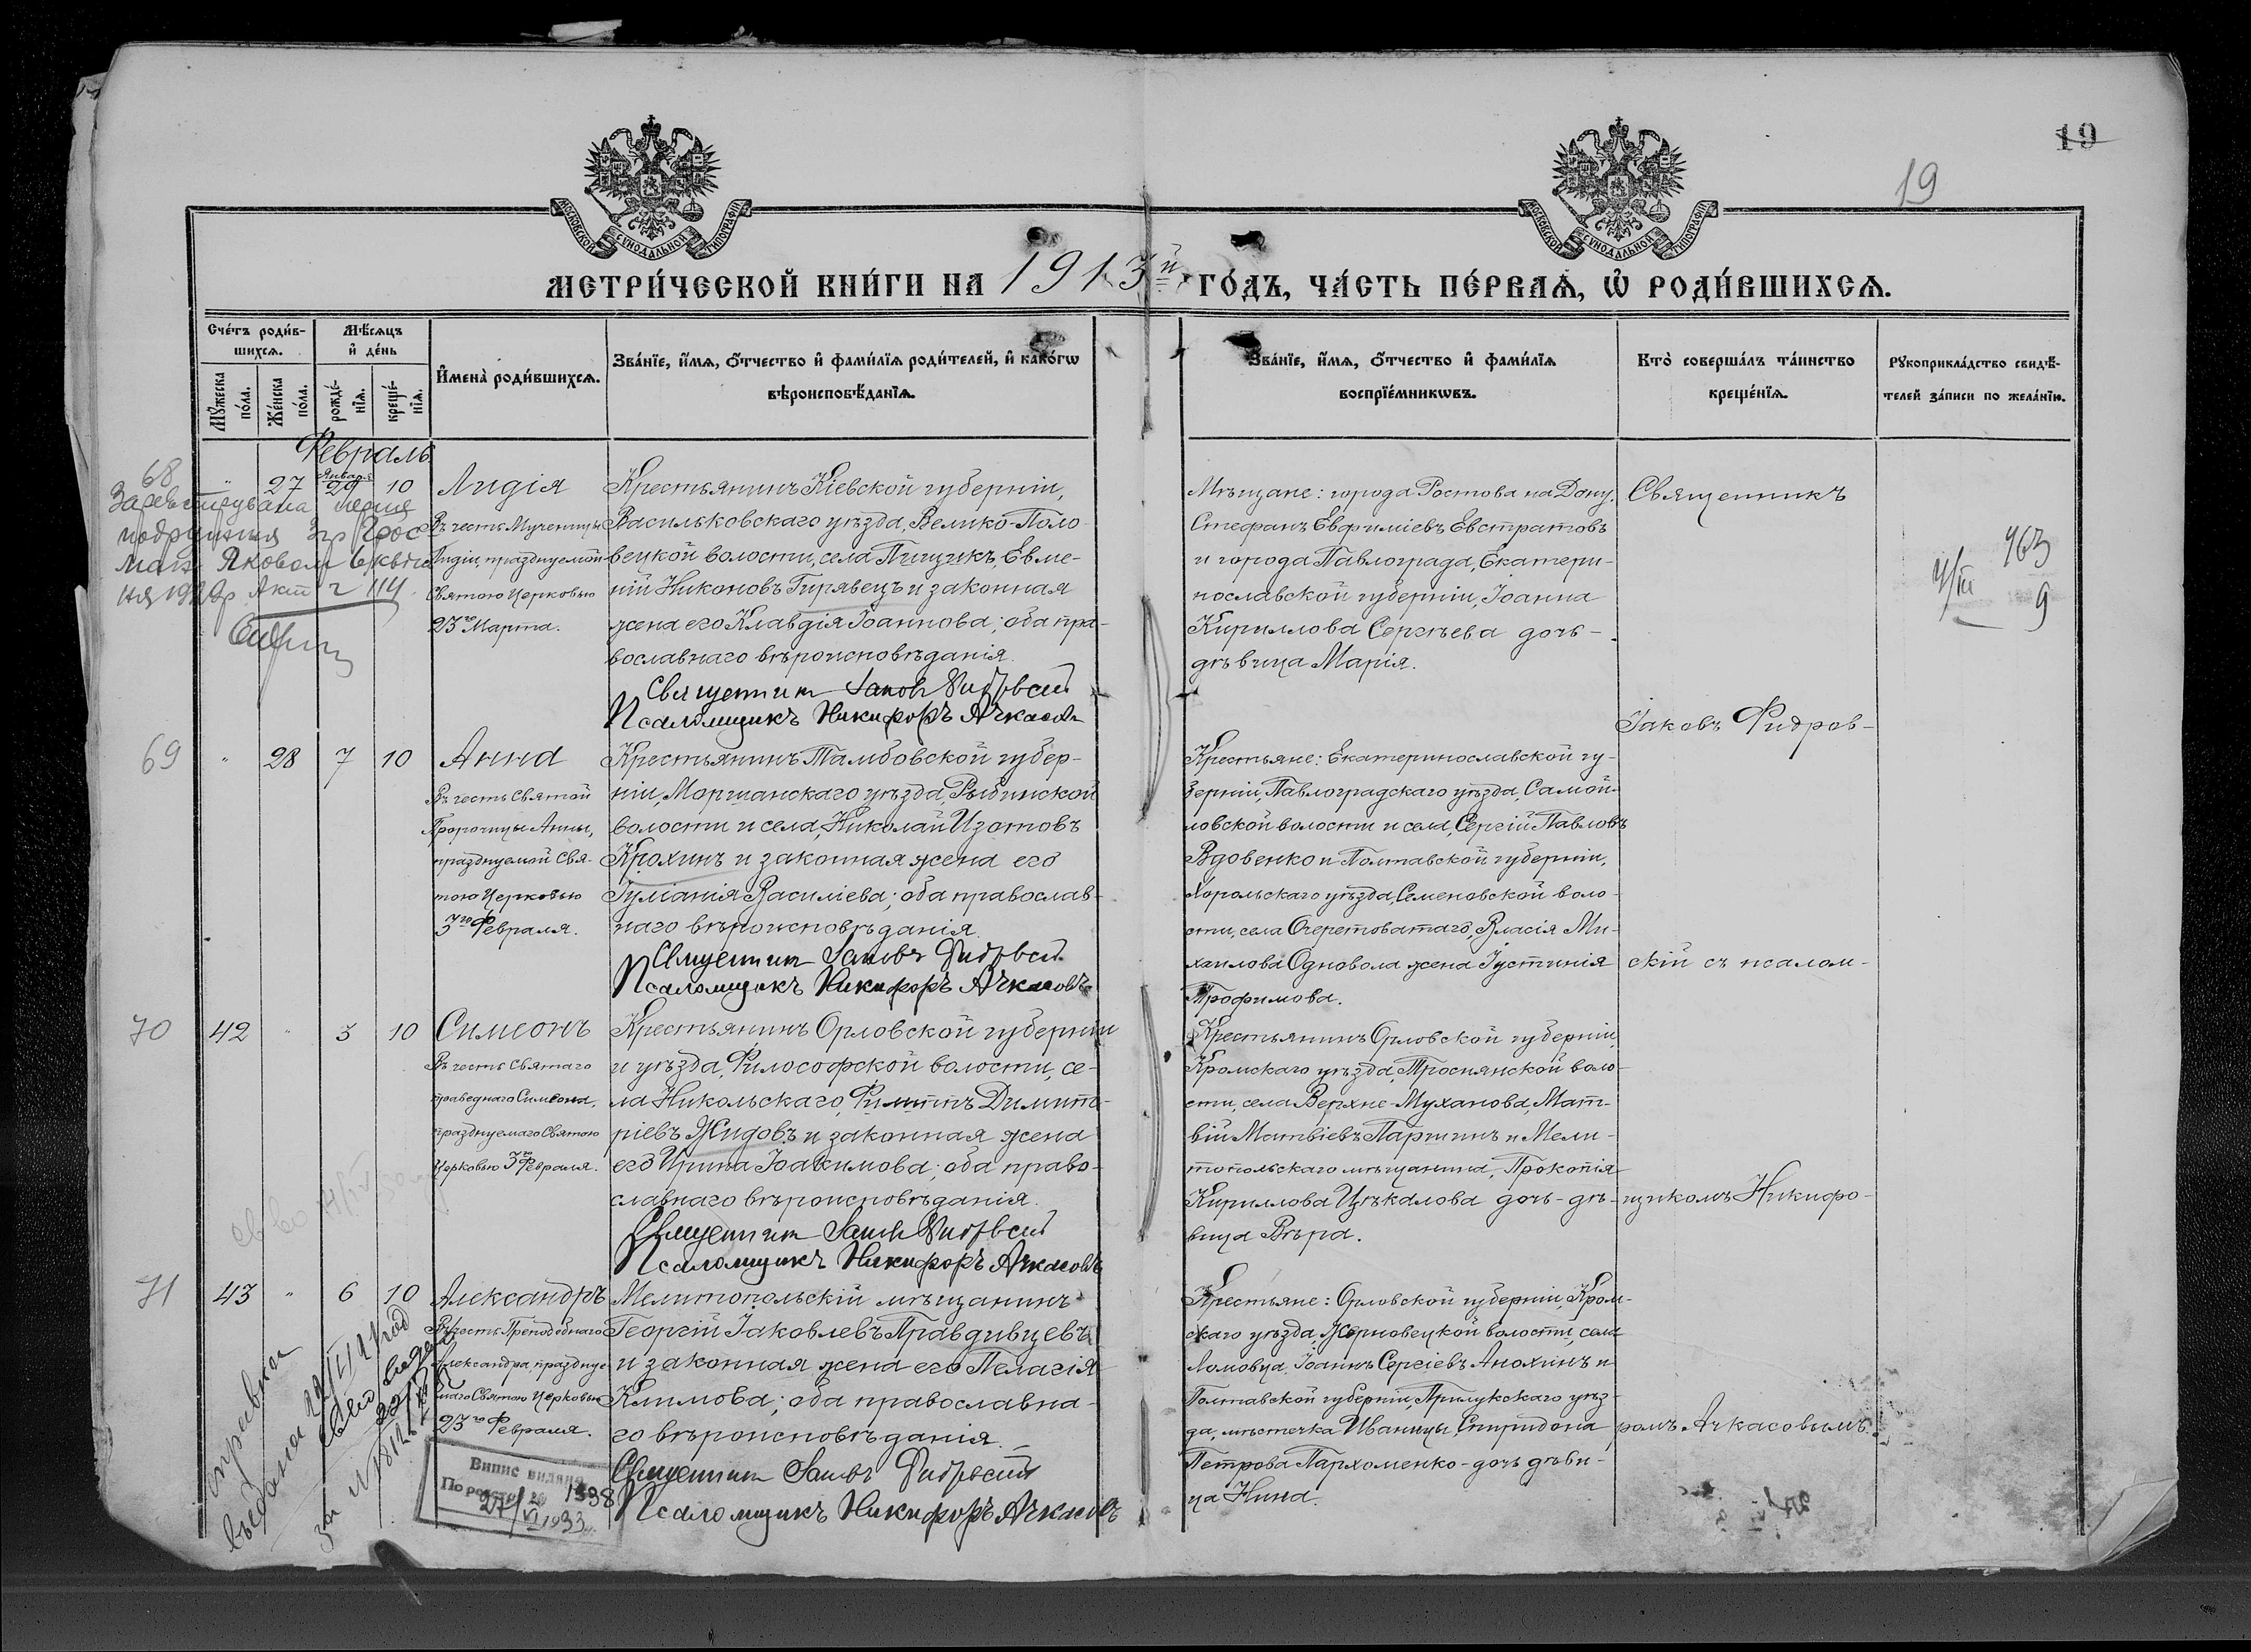 19
19
МОСКОВСКОЙ СУНОДАЛЬНОЙ ТИПОГРАФІИ
МОСКОВСКОЙ СУНОДАЛЬНОЙ ТИПОГРАФІИ
МЕТРИ́ЧЕСКОЙ КНИ́ГИ НА 1913й ГО́ДЪ, ЧА́СТЬ ПЕ́РВАѦ, Ѡ҆ РОДИ́ВШИХСѦ.
Сче́тъ роди́в-
шихсѧ.
Мѣ́сѧцъ
и҆ де́нь
Мꙋ́жеска по́ла.
Же́нска по́ла.
рожде́-
нїѧ.
креще́-
нїѧ.
И҆мена̀ роди́вшихсѧ.
Зва́нїе, и҆́мѧ, ѻ҆́тчество и҆ фами́лїѧ роди́телей, и҆ како́гѡ
вѣроисповѣ́данїѧ.
Зва́нїе, и҆́мѧ, ѻ҆́тчество и҆ фами́лїѧ
воспрїе́мникѡвъ.
Кто̀ соверша́лъ та́инство
креще́нїѧ.
Рꙋкоприкла́дство свидѣ́-
телей за́писи по жела́нїю.
Февраль
68
" 27 Января 29 10
Лидія
Въ честь Мученицы
Лидіи, празднуемой
Святою Церковью
23го Марта.
Крестьянинъ Кіевской губерніи,
Васильковскаго уѣзда, Велико-Поло-
вецкой волости, села Пищикъ, Евме-
ній Никоновъ Гирявецъ и законная
жена его Клавдія Іоаннова; оба пра-
вославнаго вѣроисповѣданія.
Священникъ Іаковъ Фидровскій
Псаломщикъ Никифоръ Ачкасовъ
Мѣщане: города Ростова на Дону,
Стефанъ Евфиміевъ Евстратовъ
и города Павлограда, Екатери-
нославской губерніи, Іоанна
Кириллова Сергѣева дочь-
дѣвица Марія.
Священникъ
463
9
69 " 28 7 10
Анна
Въ честь Святой
Пророчицы Анны,
празднуемой Свя-
тою Церковью
3го Февраля.
Крестьянинъ Тамбовской губер-
ніи, Моршанскаго уѣзда, Рыбинской
волости и села, Николай Изотовъ
Крохинъ и законная жена его
Іуліанія Василіева; оба православ-
наго вѣроисповѣданія.
Священникъ Іаковъ Фидровскій
Псаломщикъ Никифоръ Ачкасовъ
Крестьяне: Екатеринославской гу-
берніи, Павлоградскаго уѣзда, Самой-
ловской волости и села, Сергій Павловъ
Вдовенко и Полтавской губерніи,
Хорольскаго уѣзда, Семеновской воло-
сти, села Очеретоватаго, Власія Ми-
хаилова Одновола жена Іустинія
Трофимова.
Іаковъ Фидров-
скій съ псалом-
70 42 " 3 10
Симеонъ
Въ честь Святаго
праведнаго Симеона,
празднуемаго Святою
Церковью 3го Февраля.
Крестьянинъ Орловской губерніи
и уѣзда, Философской волости, се-
ла Никольскаго, Филиппъ Димит-
ріевъ Жидовъ и законная жена
его Ирина Іоакимова; оба право-
славнаго вѣроисповѣданія.
Священникъ Іаковъ Фидровскій
Псаломщикъ Никифоръ Ачкасовъ
Крестьянинъ Орловской губерніи,
Кромскаго уѣзда, Троснянской воло-
сти, села Верхне-Муханова, Мат-
вій Матвіевъ Паршинъ и Мели-
топольскаго мѣщанина, Прокопія
Кириллова Цѣкалова дочь-дѣ-
вица Вѣра.
щикомъ Никифо-
71 43 " 6 10
Александръ
Въ честь Преподобнаго
Александра, праздуе-
маго Святою Церковью
23го Февраля.
Мелитопольскій мѣщанинъ
Георгій Іаковлевъ Правдивцевъ
и законная жена его Пелагія
Климова; оба православна-
го вѣроисповѣданія.
Священникъ Іаковъ Фидровскій
Псаломщикъ Никифоръ Ачкасовъ
Крестьяне: Орловской губерніи, Кром-
скаго уѣзда, Жерновецкой волости, села
Ломовца, Іоаннъ Сергіевъ Анохинъ и
Полтавской губерніи, Прилукскаго уѣз-
да, мѣстечка Иваницы, Спиридона
Петрова Пархоменко-дочь дѣви-
ца Нина.
ромъ Ачкасовымъ.
Випис видана
По реестр 1938
27/VI 1933